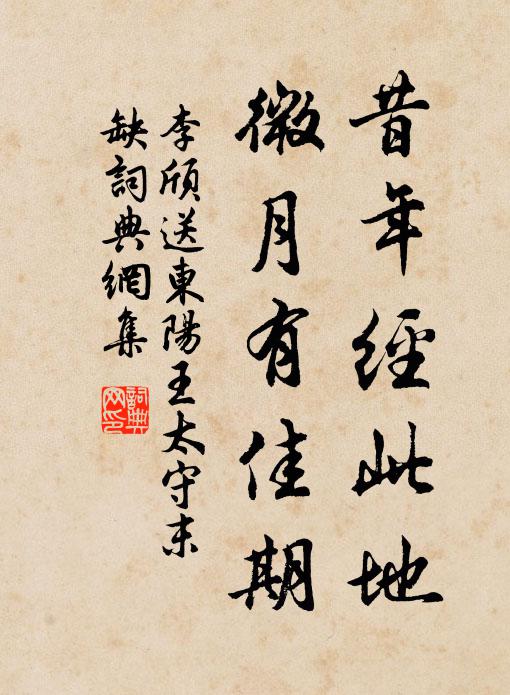 昔年經此地
微月有佳期
李頎送東陽王太守末
缺詞典網集
詞典網印